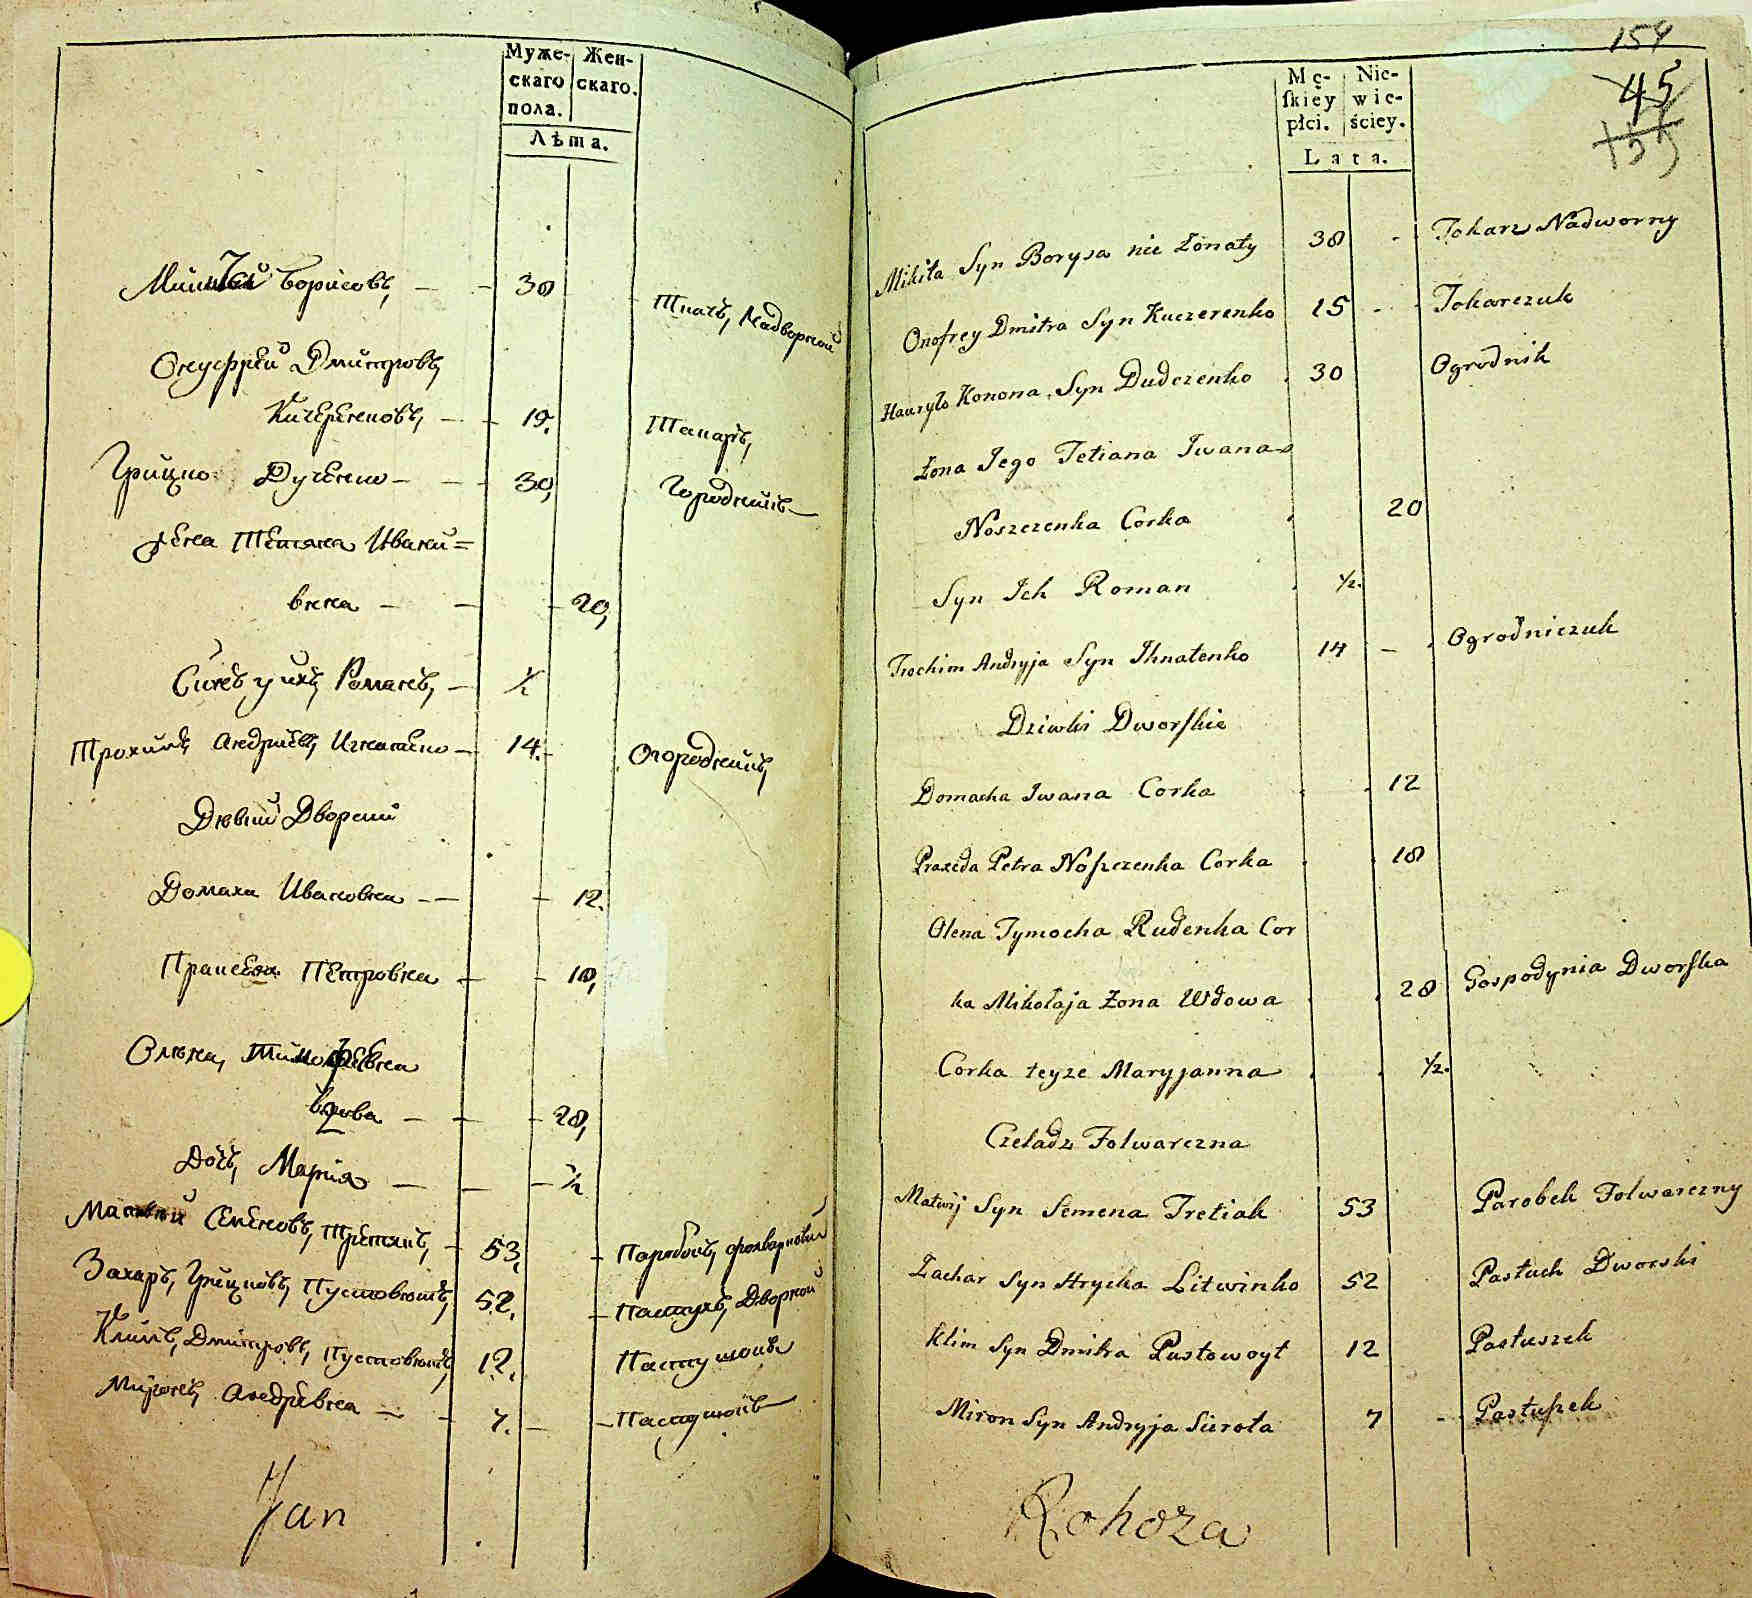 Муже- Жен-
скаго скаго.
пола.
Лѣта.
Микита Борисовъ, — — 38 Ткачъ, Надворной
Онуфрей Дмитровъ,
Кичеренковъ, — — 19. Такаръ,
Грицко Дученко — — — 30, Городникъ —
Жена Тетяна Ивани=
вна — — — 20,
Синъ у ихъ, Романъ, — ½
Трохимъ, Андриевъ, Игнатенко — 14. — Огородникъ,
Девки Дворски
Домаха Ивановна — — — 12.
Пракседа Петровна — — 18,
Олена, Тимофеевна
вдова — — — 28,
Дочь, Мария — — — ½
Матвий Семеновъ, Третякъ, — 53, — Паробокъ, фолварковий
Захаръ, Грицковъ, Пустовойтъ, 52. — Пастухъ, Дворной
Климъ, Дмитровъ, Пустовойтъ, 12. Пастушокъ
Миронъ, Андревна — — 7. — — Пастушокъ —
Jan
154
45
Mę- Nie-
ſkiéy wie-
płci. ściey.
Lata.
Mikita Syn Borysa nie Żonaty 38 - Tokarz Nadworny
Onofrey Dmitra Syn Kuczerenko 15 - Tokarczuk
Hauryło Konona Syn Dudczenko 30 Ogrodnik
Żona Jego Tetiana Iwana
Noszczenka Corka 20
Syn Ich Roman ½.
Trochim Andryja Syn Ihnatenko 14 — Ogrodniczuk
Dziwki Dworſkie
Domacha Iwana Corka 12
Praxeda Petra Noſzczenka Corka 18
Olena Tymocha Rudenka Cor
ka Mikołaja Żona Wdowa 28 Gospodynia Dworſka
Corka teyze Maryjanna ½.
Czeladz Folwarczna
Matwij Syn Semena Tretiak 53 Parobek Folwarczny
Zachar Syn Hrycka Litwinko 52 Pastuch Dworski
Klim Syn Dmitra Pustowoyt 12 Pastuszek
Miron Syn Andryja Sierota 7 - Pastuſzek
Rohoza